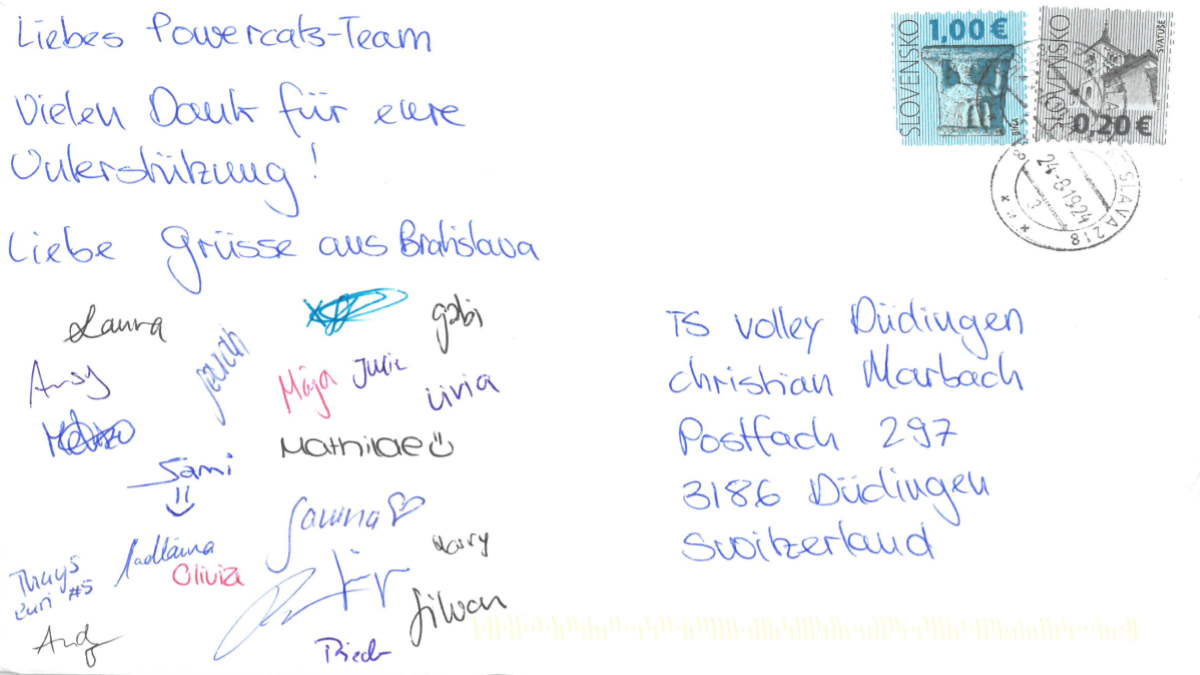 Liebes Powercats-Team
Vielen Dank für eure
Unterstützung!
Liebe Grüsse aus Bratislava
Laura
Gabi
Maja
Julie
Livia
Mathilde
Sämi
Samina
Thays
#5
Olivia
Silvan
SLOVENSKO
1,00 €
SLOVENSKO
0,20 €
SVÄTUŠE
24-8.1924
3
SLAVA 218
TS Volley Düdingen
Christian Marbach
Postfach 297
3186 Düdingen
Switzerland